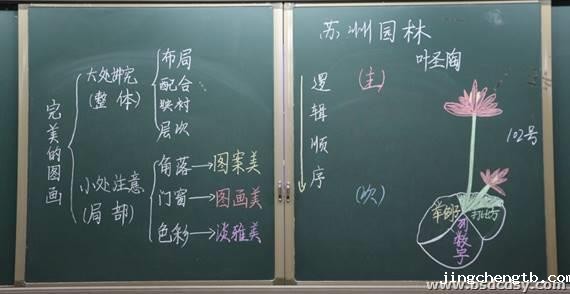 完美的图画
大处讲究
(整体)
布局
配合
映衬
层次
小处注意
(局部)
角落→图案美
门窗→图画美
色彩→淡雅美
苏州园林
叶圣陶
逻辑顺序
(主)
(次)
102号
举例子
打比方
列数字
jingchengtb.com